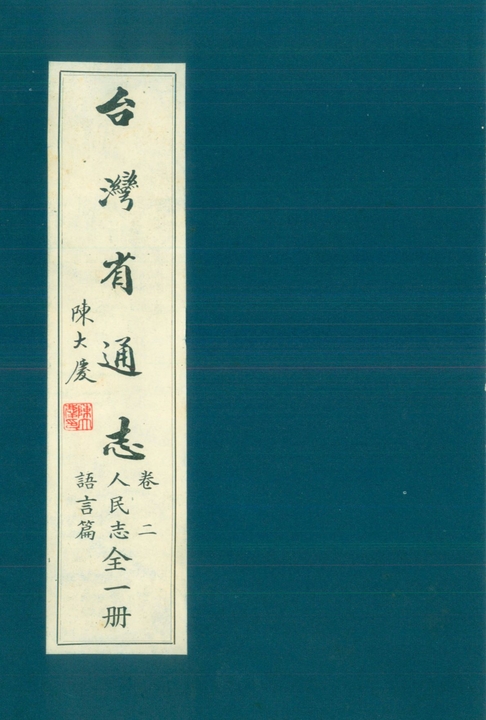 台灣省通志
卷二
人民志
語言篇
全一册
陳大慶